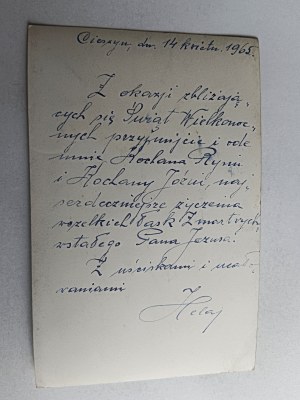 Cieszyn, dn. 14 kwietn. 1965.
Z okazji zbliżają-
cych się Świąt Wielkanoc-
nych przyjmijcie i ode
mnie Kochana Ryniu
i Kochany Józiu, naj-
serdeczniejsze życzenia
wszelkich łask Zmartwych-
wstałego Pana Jezusa.
Z uściskami i ucało-
waniami